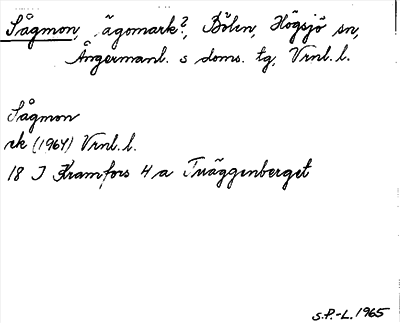 Sågmon, ägomark?, Bölen, Högsjö sn,
Ångermanl. s doms. tg, Vrnl. l.
Sågmon
rk (1964) Vrnl. l.
18 I Kramfors 4 a Träggenberget
S.P.-L. 1965